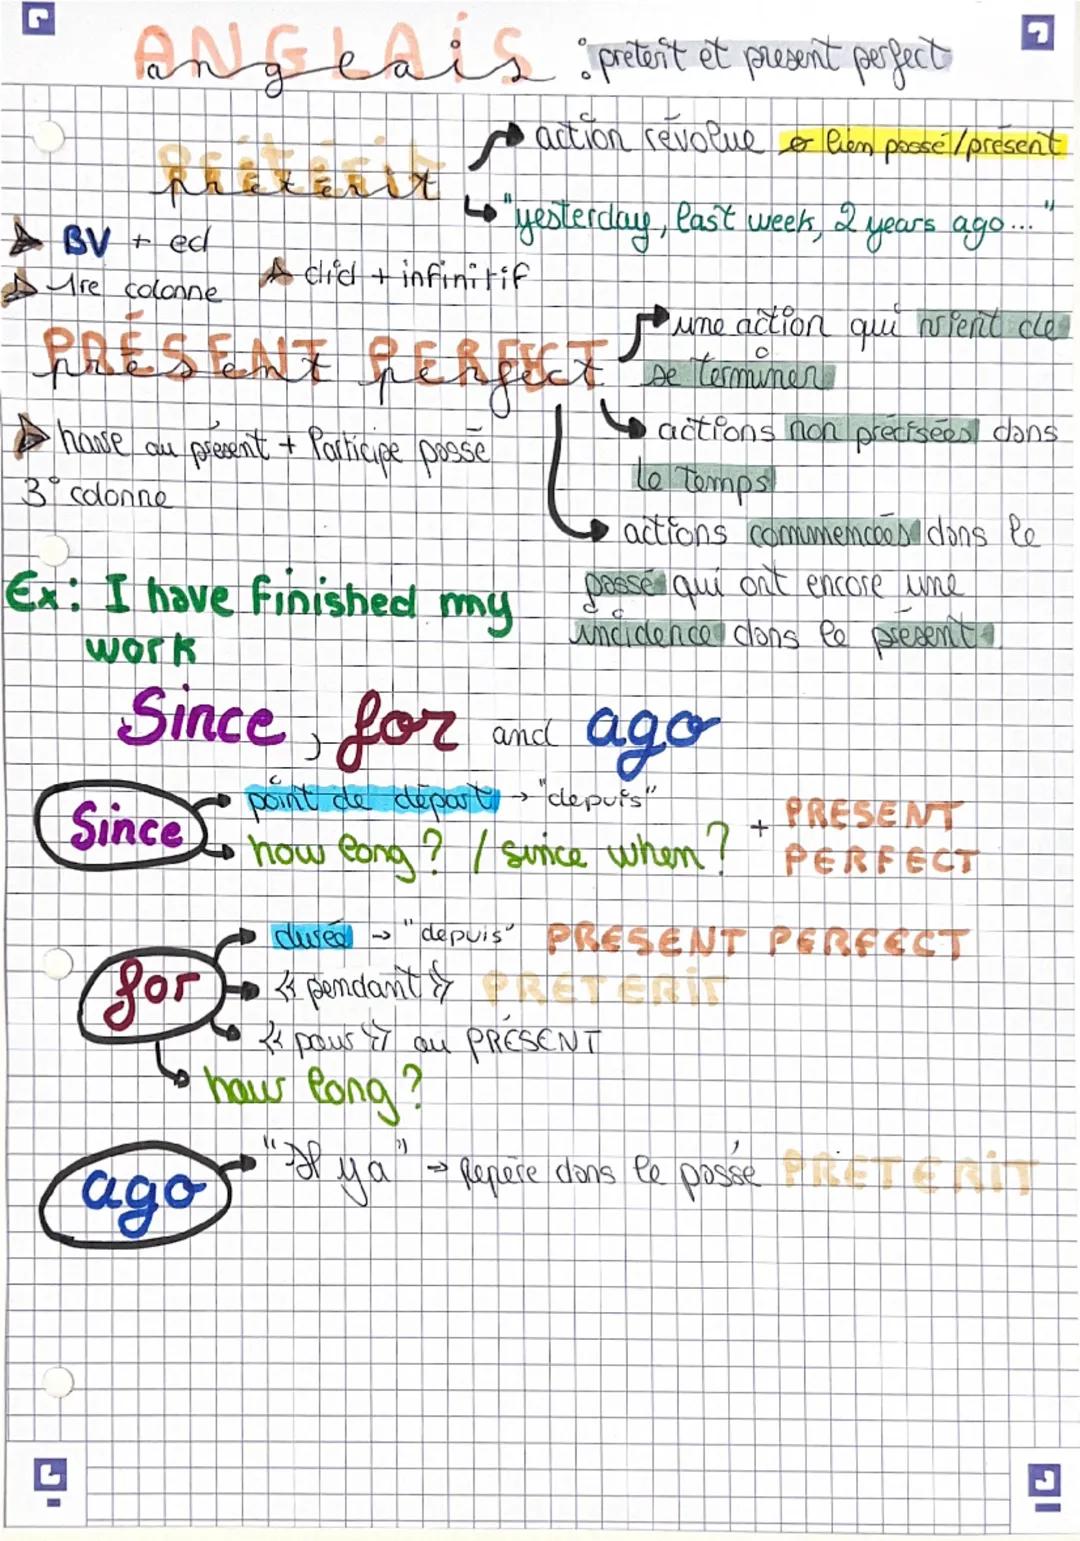 ANGLAIS
anglais : preterit et present perfect
prétérit
PRÉTÉRIT
action révolue ø lien passé/présent
"yesterday, last week, 2 years ago..."
BV + ed
1re colonne
did + infinitif
PRÉSENT PERFECT
présent perfect
have au présent + Participe passé
3° colonne
une action qui vient de
se terminer
actions non précisées dans
le temps
actions commencées dans le
passé qui ont encore une
incidence dans le présent
Ex: I have finished my
work
Since, for and ago
Since
point de départ → "depuis"
how long? / since when?
+ PRESENT
PERFECT
for
durée → "depuis" PRESENT PERFECT
« pendant » PRETERIT
« pour » au PRÉSENT
how long?
ago
"Il y a" → Repère dans le passé PRETERIT